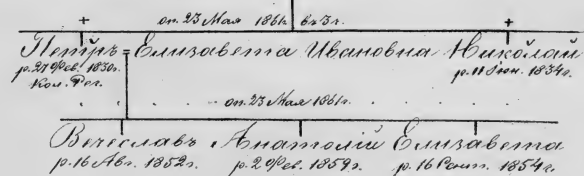 оп. 23 Мая 1861г. въ 3 г.
Петръ = Елизавета Ивановна Николай
р. 27 Фев. 1830г. р. 11 Iюн. 1834г.
Кол. Рег.
оп. 23 Мая 1861г.
Вечеславъ Анатолій Елизавета
р. 16 Авг. 1852г. р. 2 Фев. 1859г. р. 16 Сент. 1854г.